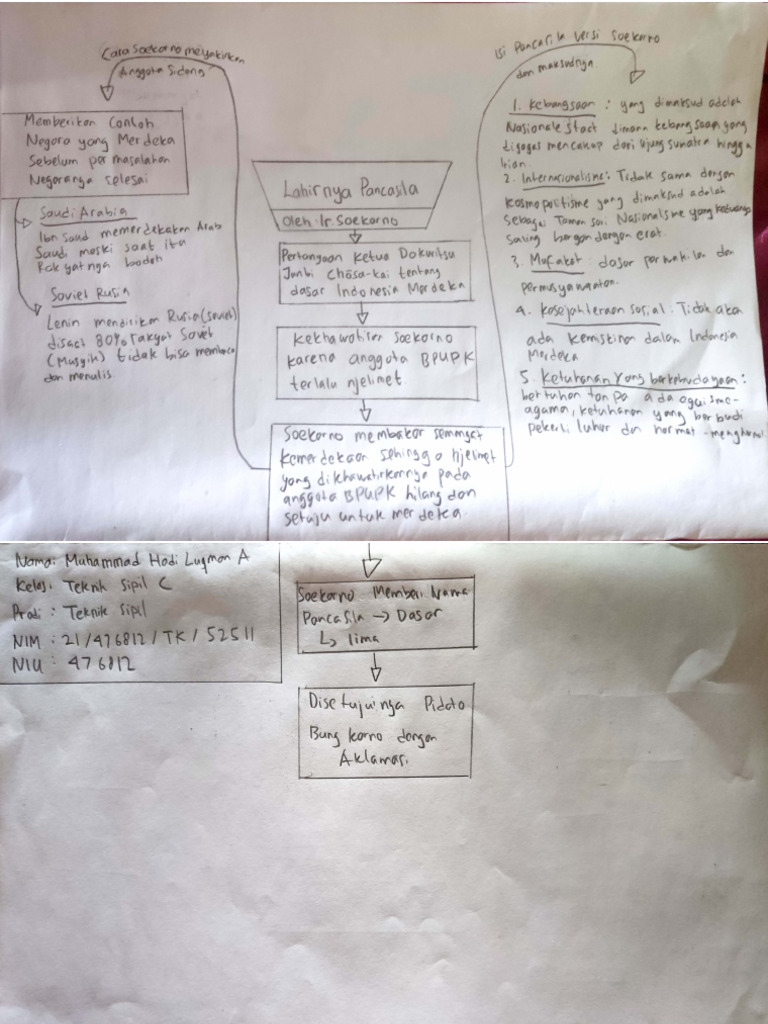 Cara Soekarno meyakinkan
Anggota Sidang
Memberikan Contoh
Negara yang Merdeka
Sebelum permasalahan
Negaranya selesai
Saudi Arabia
Ibn Saud memerdekakan Arab
Saudi meski saat itu
Rakyatnya bodoh
Soviet Rusia
Lenin mendirikan Rusia (Soviet)
disaat 80% rakyat Soviet
(Musyik) tidak bisa membaca
dan menulis.
Lahirnya Pancasila
Oleh Ir. Soekarno
Pertanyaan Ketua Dokuritsu
Junbi Chōsa-kai tentang
dasar Indonesia Merdeka
Kekhawatiran Soekarno
karena anggota BPUPK
terlalu njelimet
Soekarno membakar semangat
kemerdekaan sehingga njelimet
yang dikhawatirkannya pada
anggota BPUPK hilang dan
setuju untuk merdeka.
Isi Pancasila versi Soekarno
dan maksudnya.
1. Kebangsaan : yang dimaksud adalah
Nasionale Staat dimana kebangsaan yang
digagas mencakup dari ujung sumatra hingga
Irian.
2. Internasionalisme : Tidak sama dengan
kosmopolitisme yang dimaksud adalah
sebagai Taman sari Nasionalisme yang keduanya
saling bergandengan erat.
3. Mufakat : dasar perwakilan dan
permusyawaratan.
4. Kesejahteraan sosial : Tidak akan
ada kemiskinan dalam Indonesia
Merdeka
5. Ketuhanan yang berkebudayaan :
bertuhan tanpa ada egoisme-
agama, ketuhanan yang berbudi
pekerti luhur dan hormat-menghormati.
Nama : Muhammad Hadi Luqman A
Kelas : Teknik Sipil C
Prodi : Teknik Sipil
NIM : 21/476812/TK/52511
NIU : 476812
Soekarno Memberi Nama
Pancasila → Dasar
↳ lima
Disetujuinya Pidato
Bung Karno dengan
Aklamasi